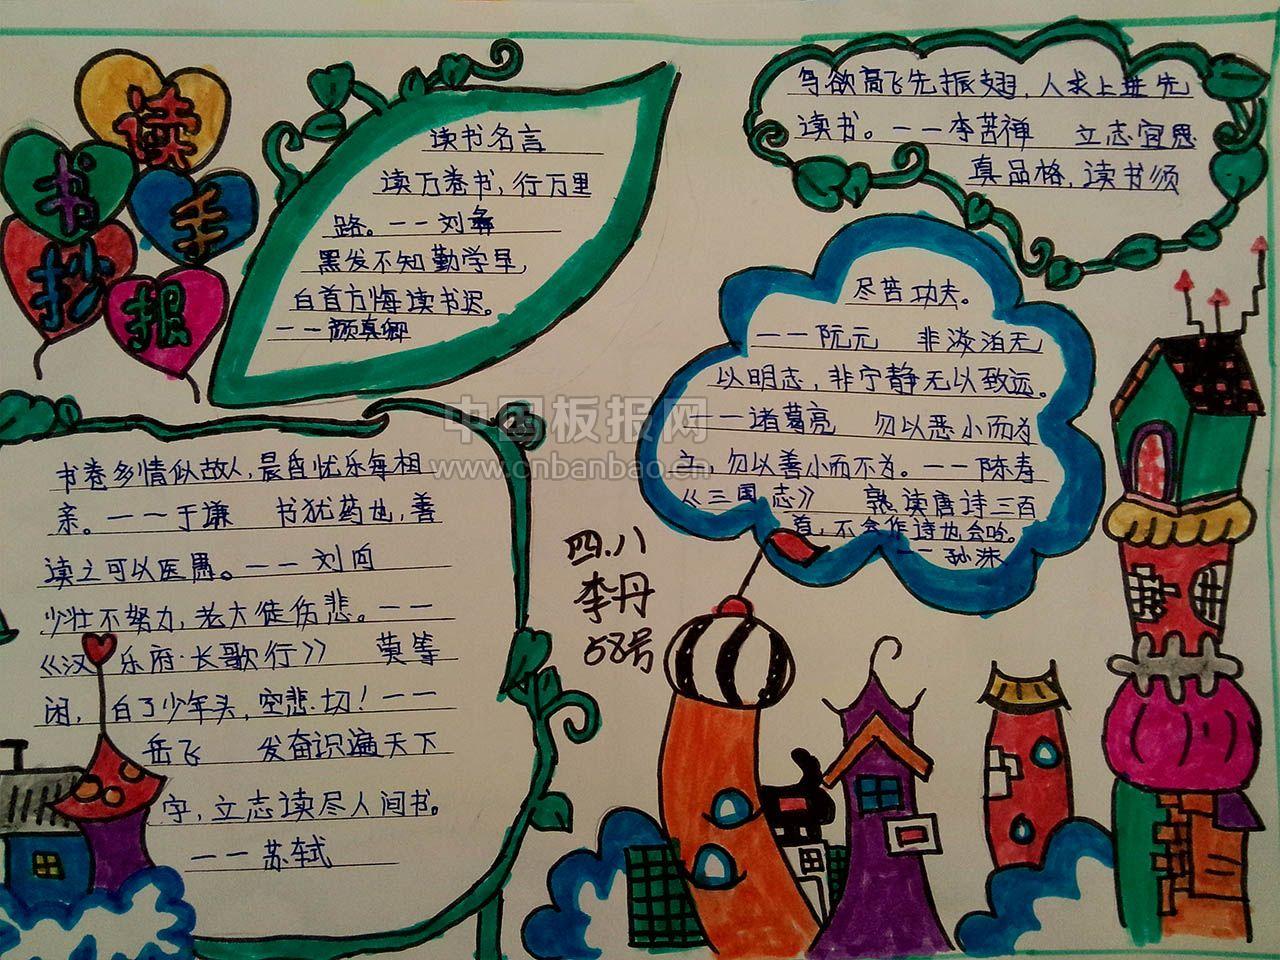 读
书手
抄报
读书名言
读万卷书，行万里
路。——刘彝
黑发不知勤学早，
白首方悔读书迟。
——颜真卿
鸟欲高飞先振翅，人求上进先
读书。——李苦禅 立志宜思
真品格，读书须
尽苦功夫。
——阮元 非淡泊无
以明志，非宁静无以致远。
——诸葛亮 勿以恶小而为
之，勿以善小而不为。——陈寿
《三国志》 熟读唐诗三百
首，不会作诗也会吟。
——孙洙
中国板报网
www.cnbanbao.cn
书卷多情似故人，晨昏忧乐每相
亲。——于谦 书犹药也，善
读之可以医愚。——刘向
少壮不努力，老大徒伤悲。——
《汉 乐府·长歌行》 莫等
闲，白了少年头，空悲切！——
岳飞 发奋识遍天下
字，立志读尽人间书。
——苏轼
四.八
李丹
58号